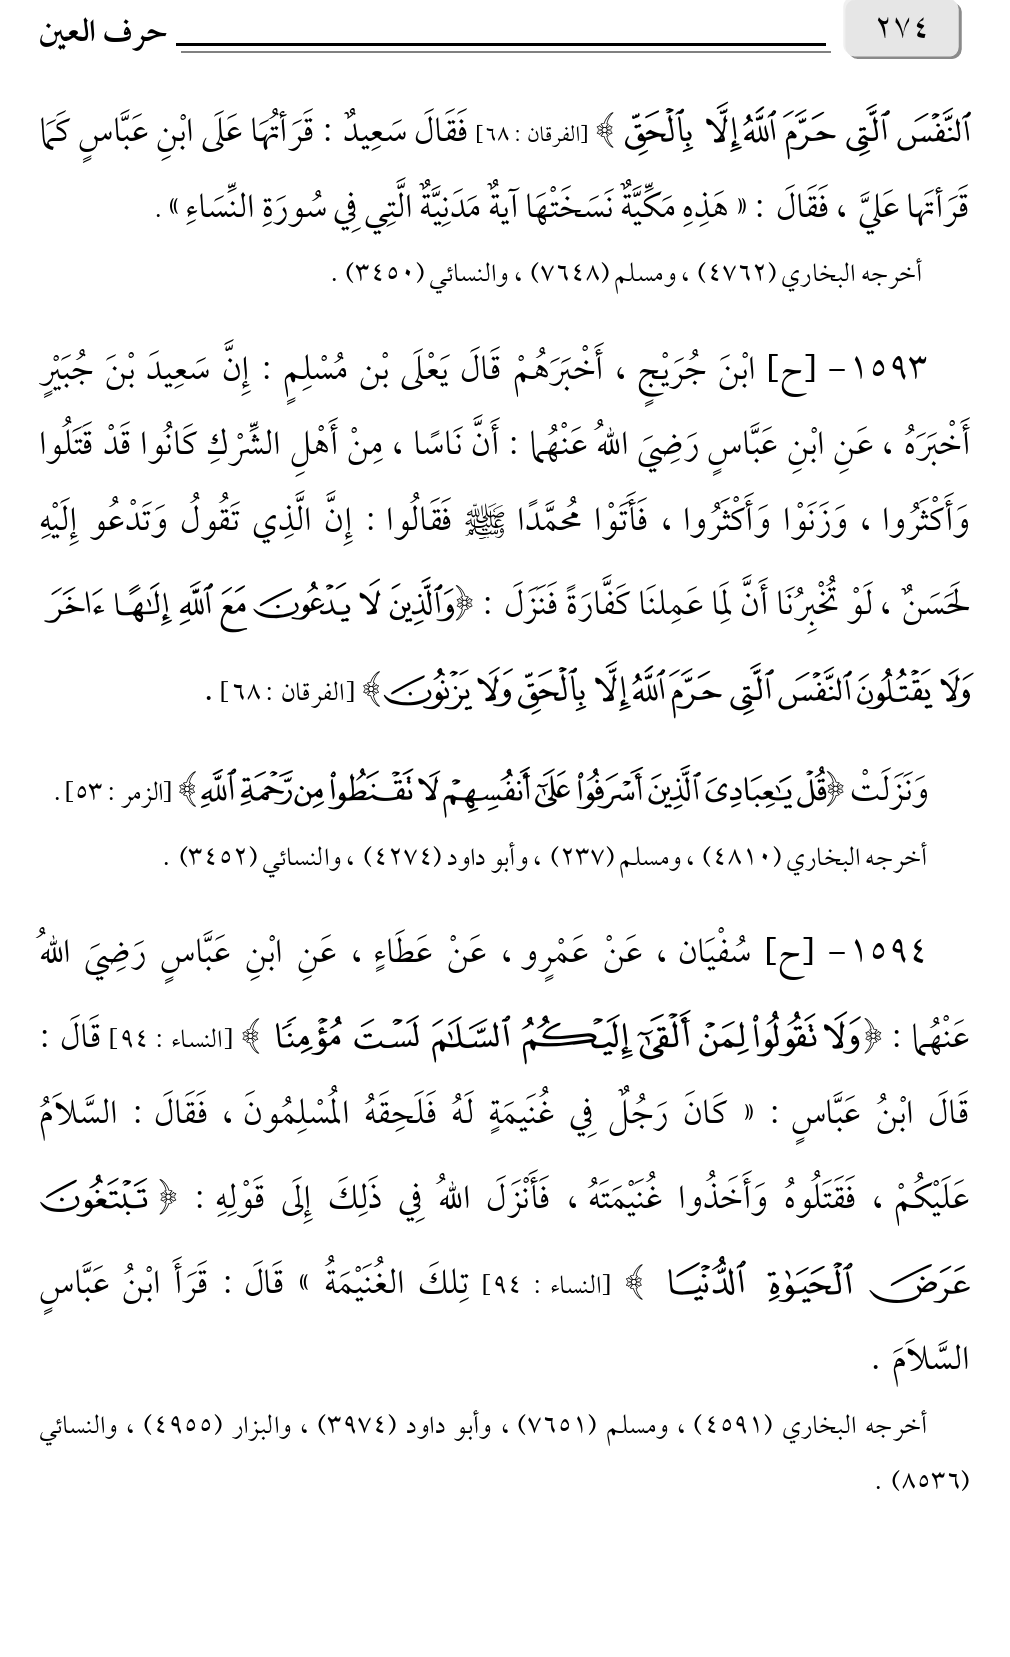 ٢٧٤
حرف العين
ٱلنَّفْسَ ٱلَّتِى حَرَّمَ ٱللَّهُ إِلَّا بِٱلْحَقِّ ﴾ [الفرقان : ٦٨] فَقَالَ سَعِيدٌ : قَرَأتُهَا عَلَى ابْنِ عَبَّاسٍ كَمَا
قَرَأتَها عَليَّ ، فَقَالَ : « هَذِهِ مَكِّيَّةٌ نَسَخَتْهَا آيةٌ مَدَنِيَّةٌ الَّتِي فِي سُورَةِ النِّسَاءِ » .
أخرجه البخاري (٤٧٦٢) ، ومسلم (٧٦٤٨) ، والنسائي (٣٤٥٠) .
١٥٩٣- [ح] ابْنَ جُرَيْجٍ ، أَخْبَرَهُمْ قَالَ يَعْلَى بْن مُسْلِمٍ : إِنَّ سَعِيدَ بْنَ جُبَيْرٍ
أَخْبَرَهُ ، عَنِ ابْنِ عَبَّاسٍ رَضِيَ اللهُ عَنْهُما : أَنَّ نَاسًا ، مِنْ أَهْلِ الشِّرْكِ كَانُوا قَدْ قَتَلُوا
وَأَكْثَرُوا ، وَزَنَوْا وَأَكْثَرُوا ، فَأَتَوْا مُحمَّدًا ﷺ فَقَالُوا : إِنَّ الَّذِي تَقُولُ وَتَدْعُو إِلَيْهِ
لَحَسَنٌ ، لَوْ تُخْبِرُنَا أَنَّ لِمَا عَمِلنَا كَفَّارَةً فَنَزَلَ : ﴿وَٱلَّذِينَ لَا يَدْعُونَ مَعَ ٱللَّهِ إِلَٰهًا ءَاخَرَ
وَلَا يَقْتُلُونَ ٱلنَّفْسَ ٱلَّتِى حَرَّمَ ٱللَّهُ إِلَّا بِٱلْحَقِّ وَلَا يَزْنُونَ﴾ [الفرقان : ٦٨] .
وَنَزَلَتْ ﴿قُلْ يَٰعِبَادِىَ ٱلَّذِينَ أَسْرَفُواْ عَلَىٰٓ أَنفُسِهِمْ لَا تَقْنَطُواْ مِن رَّحْمَةِ ٱللَّهِ﴾ [الزمر : ٥٣] .
أخرجه البخاري (٤٨١٠) ، ومسلم (٢٣٧) ، وأبو داود (٤٢٧٤) ، والنسائي (٣٤٥٢) .
١٥٩٤- [ح] سُفْيَان ، عَنْ عَمْرٍو ، عَنْ عَطَاءٍ ، عَنِ ابْنِ عَبَّاسٍ رَضِيَ اللهُ
عَنْهُما : ﴿وَلَا تَقُولُواْ لِمَنْ أَلْقَىٰٓ إِلَيْكُمُ ٱلسَّلَٰمَ لَسْتَ مُؤْمِنًا ﴾ [النساء : ٩٤] قَالَ :
قَالَ ابْنُ عَبَّاسٍ : « كَانَ رَجُلٌ فِي غُنَيمَةٍ لَهُ فَلَحِقَهُ المُسْلِمُونَ ، فَقَالَ : السَّلاَمُ
عَلَيْكُمْ ، فَقَتَلُوهُ وَأَخَذُوا غُنَيْمَتَهُ ، فَأَنْزَلَ اللهُ فِي ذَلِكَ إِلَى قَوْلِهِ : ﴿ تَبْتَغُونَ
عَرَضَ ٱلْحَيَوٰةِ ٱلدُّنْيَا ﴾ [النساء : ٩٤] تِلكَ الغُنَيْمَةُ » قَالَ : قَرَأَ ابْنُ عَبَّاسٍ
السَّلاَمَ .
أخرجه البخاري (٤٥٩١) ، ومسلم (٧٦٥١) ، وأبو داود (٣٩٧٤) ، والبزار (٤٩٥٥) ، والنسائي
(٨٥٣٦) .